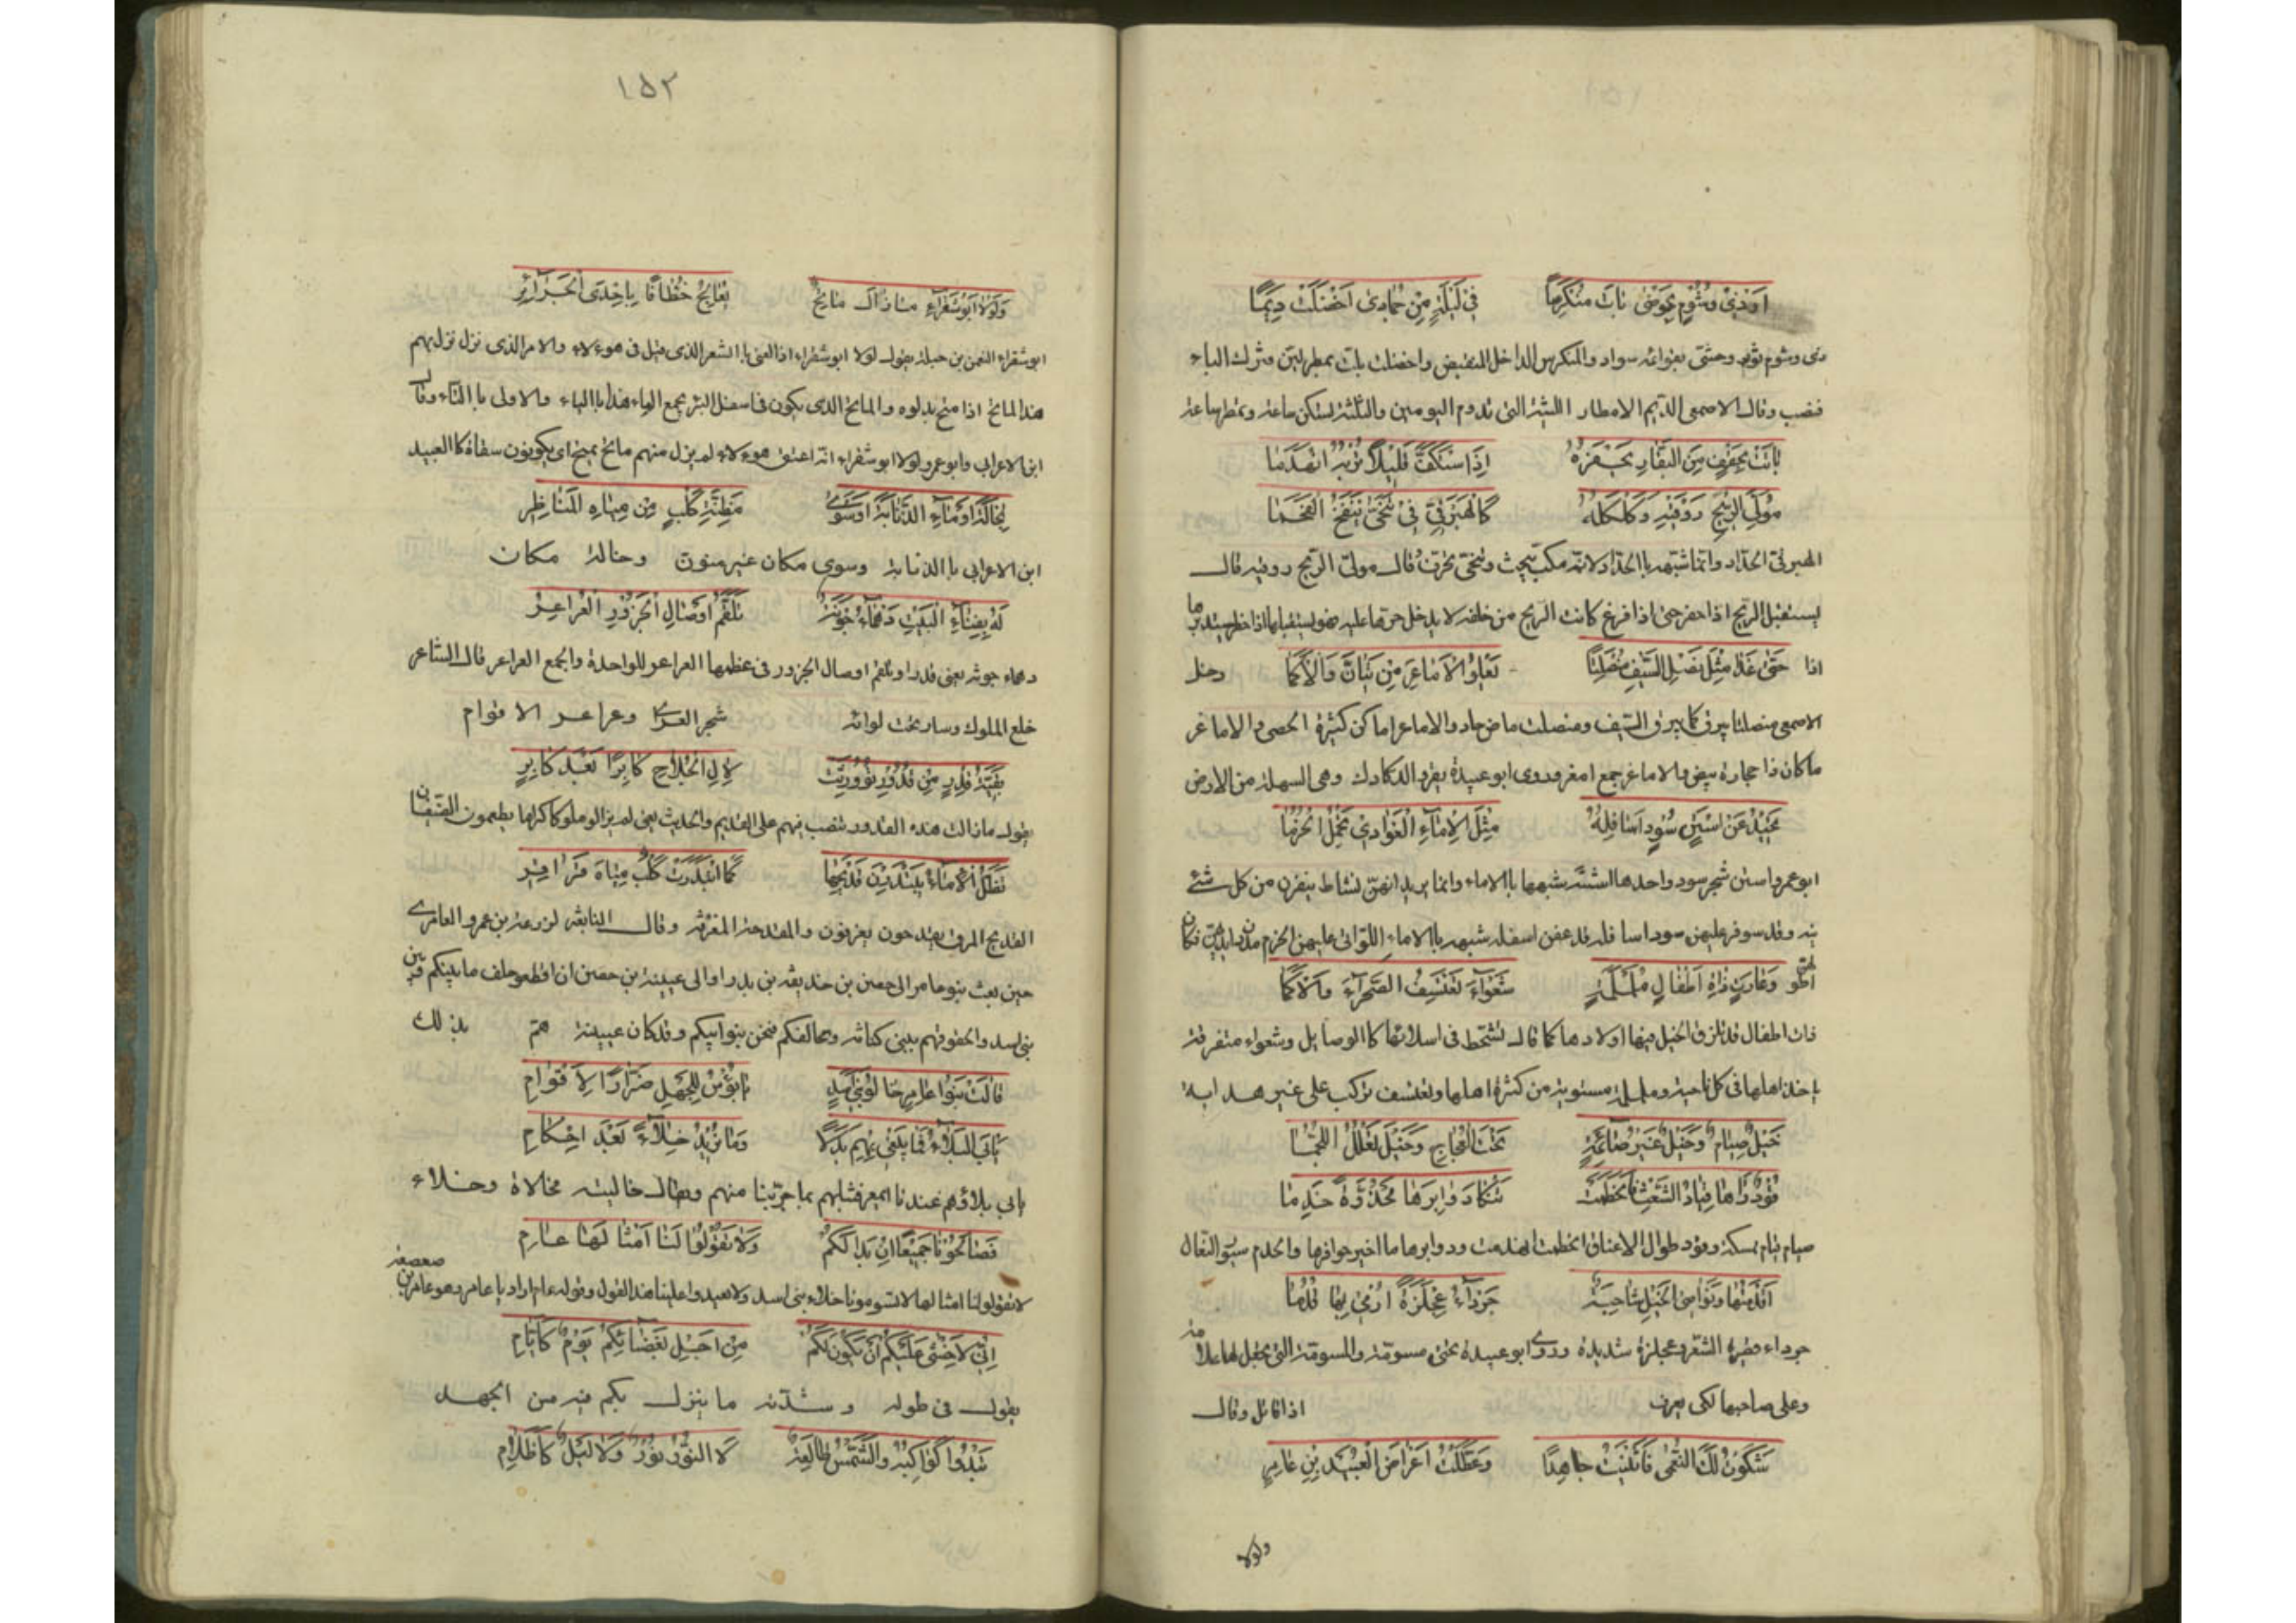 اَوْذِىْ وُشُوْمٍ بِحَوْضَى بَاتَ مُنْكَرِسًا فِى لَيْلَةٍ مِنْ جُمَادَى اَخْضَلَتْ دِيَمًا
ذى وشوم ثور وحشى بقوائمه سواد والمنكرس الداخل المنقبض واخضلت بلت بمطر لين وترك الباء
فنصب وقال الاصمعى الديم الامطار اللينة التى تدوم اليومين والثلثة لتسكن ساعة وتمطر ساعة
بَاتَتْ بِحِقْفٍ مِنَ البَقَّارِ يَحْفِزُهُ اِذَا اسْتَكَفَّ قَلِيْلاً تُرْبُهُ انْهَدَمَا
مُوَلِّىَ الرِّيْحِ رَوْقَيْهِ وَكَلْكَلَهُ كَالْهِبْرِقِىِّ تَنَحَّى يَنْفُخُ الفَحَمَا
الهبرقى الحداد وانما شبهه باالحداد لانه مكب يبحث وتنحى تحرف قال مولى الريح روقيه قال
يستقبل الريح اذا حفر حتى اذا فرغ كانت الريح من خلفه لا يدخل حرها عليه فهو يستقبلها اذا حفر ويستدبرها
اذا حَتَّى غَدَا مِثْلَ نَصْلِ السَّيْفِ مُنْصَلِتًا يَعْلُوْ الاَمَاعِزَ مِنْ نَيَّانَ وَالاَكَمَا دخل
الاصمعى منصلتا يبرق كما يبرق السيف ومنصلت ماض حاد والاماعز اماكن كثيرة الحصى والاماعز
ماكان ذا حجارة بيض والاماعز جمع امعز وروى ابو عبيدة يقرو الدكادك وهى السهلة من الارض
تَحِيْدُ عَنْ اَسْتَنٍ سُوْدٍ اَسَافِلُهُ مِثْلَ الاِمَاءِ الْغَوَادِىْ تَحْمِلُ الحُزَمَا
ابو عمرو استن شجر سود واحدها استنة شبهها باالاماء وانما يريد انهن لنشاط ينفرن من كل شئ
ذات اطفال قد تزلق الخيل فيها اولادها كما قال تشحط فى اسلائها كا الوصايل وشعواء متفرقة
خَيْلٌ صِيَامٌ وَخَيْلٌ غَيْرُ صَائِمَةٍ تَحْتَ الْعَجَاجِ وَخَيْلٌ تَعْلُكُ اللُّجُمَا
صيام قيام ممسكة وقود طوال الاعناق انحطمت انهدمت ودوابرها ماٰخير حوافرها والخدم سيور النعال
اَقْدَمْتُهَا وَنَوَاصِى الخَيْلِ شَاحِبَةٌ جَرْدَاءَ عِجْلِزَةً اَرْمِى بِهَا قُدُمَا
جرداء قصيرة الشعر وعجلزة شديدة وروى ابو عبيدة تختى مسومة والمسومة التى يجعل لها علامة
وعلى صاحبها لكى يعرف اذا قاتل وقال
وَعَطَّلْتُ اَعْرَاضَ الْعُبَيْدِ بْنِ عَامِرِ
ولولا
١٥٢
وَلَوْلاَ اَبُوْشَقْرَاءَ مَازَالَ مَاتِحٌ يُعَالِجُ خُطَّافًا بِاِحْدَى الْجَرَائِرِ
ابو شقراء النعمن بن جبلة يقول لولا ابو شقراء اذا لغنى باالشعر الذى قيل فى هوءلاء والامر الذى نزل نزل بهم
هذا الماتح اذا متح بدلوه والمايح الذى يكون فى اسفل البئر يجمع الماء هذا باالياء والاولى باالتاء وقال
ابن الاعرابى وابو عمرو لولا ابو شقراء انه اعتق هوءلاء لم يزل منهم ماتح يمتح اى يكونون سقاة كا العبيد
بِخَالَةَ اَوْ مَاءِ الذُّنَابَةِ اَوْسُوَى مَظِنَّةِ كَلْبٍ مِنْ مِيَاهِ المَنَاظِرِ
ابن الاعرابى باالذنابة وسوى مكان غير منون وخالة مكان
لَهُ بِفِنَاءِ الْبَيْتِ دَهْمَاءُ جَوْنَةٌ تَلَقَّمُ اَوْصَالَ الجَزُوْرِ الْعُرَاعِرِ
دهماء جونة يعنى قدرا وتلقم اوصال الجزور فى عظمها العراعر للواحدة والجمع العراعر قال الشاعر
خلع الملوك وسار تحت لوائه شجر العرى وعراعر الاقوام
بَقِيَّةُ قِدْرٍ مِنْ قُدُوْرٍ تُوُوْرِثَتْ لاِلِ الجُلاَحِ كَابِرًا بَعْدَ كَابِرِ
يقول مازالت هذه القدور تنصب فيهم على القديم والحديث يعنى لم يزالوملوكا كراما يطعمون الضيفان
تَظَلُّ الاِمَاءُ يَبْتَدِرْنَ قَدِيْحَهَا كَمَا ابْتَدَرَتْ كَلْبٌ مِيَاهَ قَرَاقِرِ
القديح المرق يقدحون يغرفون والمقدحة المغرفة وقال النابغة لزرعة بن عمرو العامرى
حين بعث بنو عامر الى حصن بن حذيفة بن بدر اوالى عيينة بن حصن ان اقطعو حلف مابينكم وبين
بنى اسد والحقوهم ببنى كنانة ونحالفكم فنحن بنوابيكم وقدكان عيينة هم بذلك
قَالَتْ بَنُوْا عَامِرٍ خَالُوْ بَنِىْ اَسَدٍ يَابُؤْسَ لِلْجَهْلِ ضَرَّارًا لاَقْوَامِ
يَابَى البَلاَءُ فَمَا نَبْغِى بِهِمْ بَدَلاً وَمَا نُرِيْدُ خِلاَءً بَعْدَ اِحْكَامِ
يابى بلاؤهم عندنا بما جربنا منهم ويقال خاليته مخالاة وخلاء
فَصَالِحُوْنَا جَمِيْعًا اِنْ بَدَا لَكُمْ وَلاَ تَقُوْلُوْا لَنَا اَمْثَالَهَا عَامِ
لاتقولو لنا امثالها لاتسومونا خلاء بنى اسد ولا تعيدوا علينا هذا القول وقوله عام اراد ياعامر وهو عامر بن صعصعة
اِنِّى لاَخْشَى عَلَيْكُمْ اَنْ يَكُوْنَ لَكُمْ مِنْ اَجْلِ بَغْضَائِكُمْ يَوْمٌ كَاَيَّامِ
يقول فى طوله وشدته ما ينزل بكم فيه من الجهد
تَبْدُوا كَوَاكِبُهُ وَالشَّمْسُ طَالِعَةٌ لاَ النُّوْرُ نُوْرٌ وَلاَ لَيْلٌ كَاَظْلاَمِ